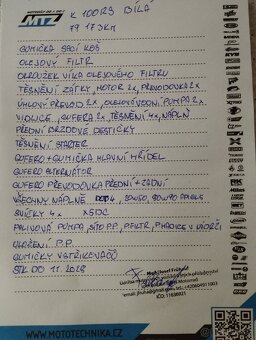 MTZ
K 100RS BÍLA
79 173KM
GUMIČKA SACÍ KOŠ
OLEJOVÝ FILTR
OKROUŽEK VÍKA OLEJOVÉHO FILTRU
TĚSNĚNÍ ZÁTKY, MOTOR 2x, PŘEVODOVKA 2x
ÚHLOVÝ PŘEVOD 2x, OLEJOVÁ VODNÍ PUMPA 2x
VIDLICE, GUFERA 2x, TĚSNĚNÍ 4x, NÁPLŇ
PŘEDNÍ BRZDOVÉ DESTIČKY
TĚSNĚNÍ STARTER
GUFERO + GUMIČKA HLAVNÍ HŘÍDEL
GUFERO ALTERNÁTOR
GUFERO PŘEVODOVKA PŘEDNÍ + ZADNÍ
VŠECHNY NÁPLNĚ DOT4
SVÍČKY 4x X5DC
PALIVOVÁ PUMPA, SÍTO PP, P.FILTR, P.HADICE V NÁDRŽI
ULOŽENÍ P.P.
GUMIČKY VSTŘIKOVAČŮ
STK DO 11.2028
tel.: +420604911003
IČO: 11690821
WWW.MOTOTECHNIKA.CZ